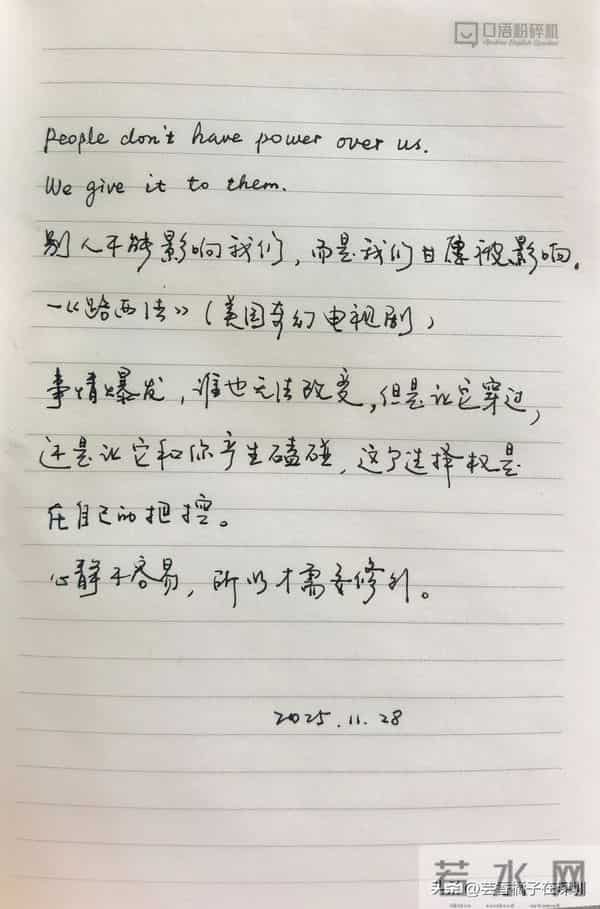 口语粉碎机
people don't have power over us.
We give it to them.
别人不能影响我们，而是我们甘愿被影响。
—《路西法》(美国奇幻电视剧)
事情爆发，谁也无法改变，但是让它穿过，
还是让它和你产生磕碰，这个选择权是
在自己的把控。
心静不容易，所以才需要修行。
2025.11.28
若水网
头条@芸香橘子在深圳